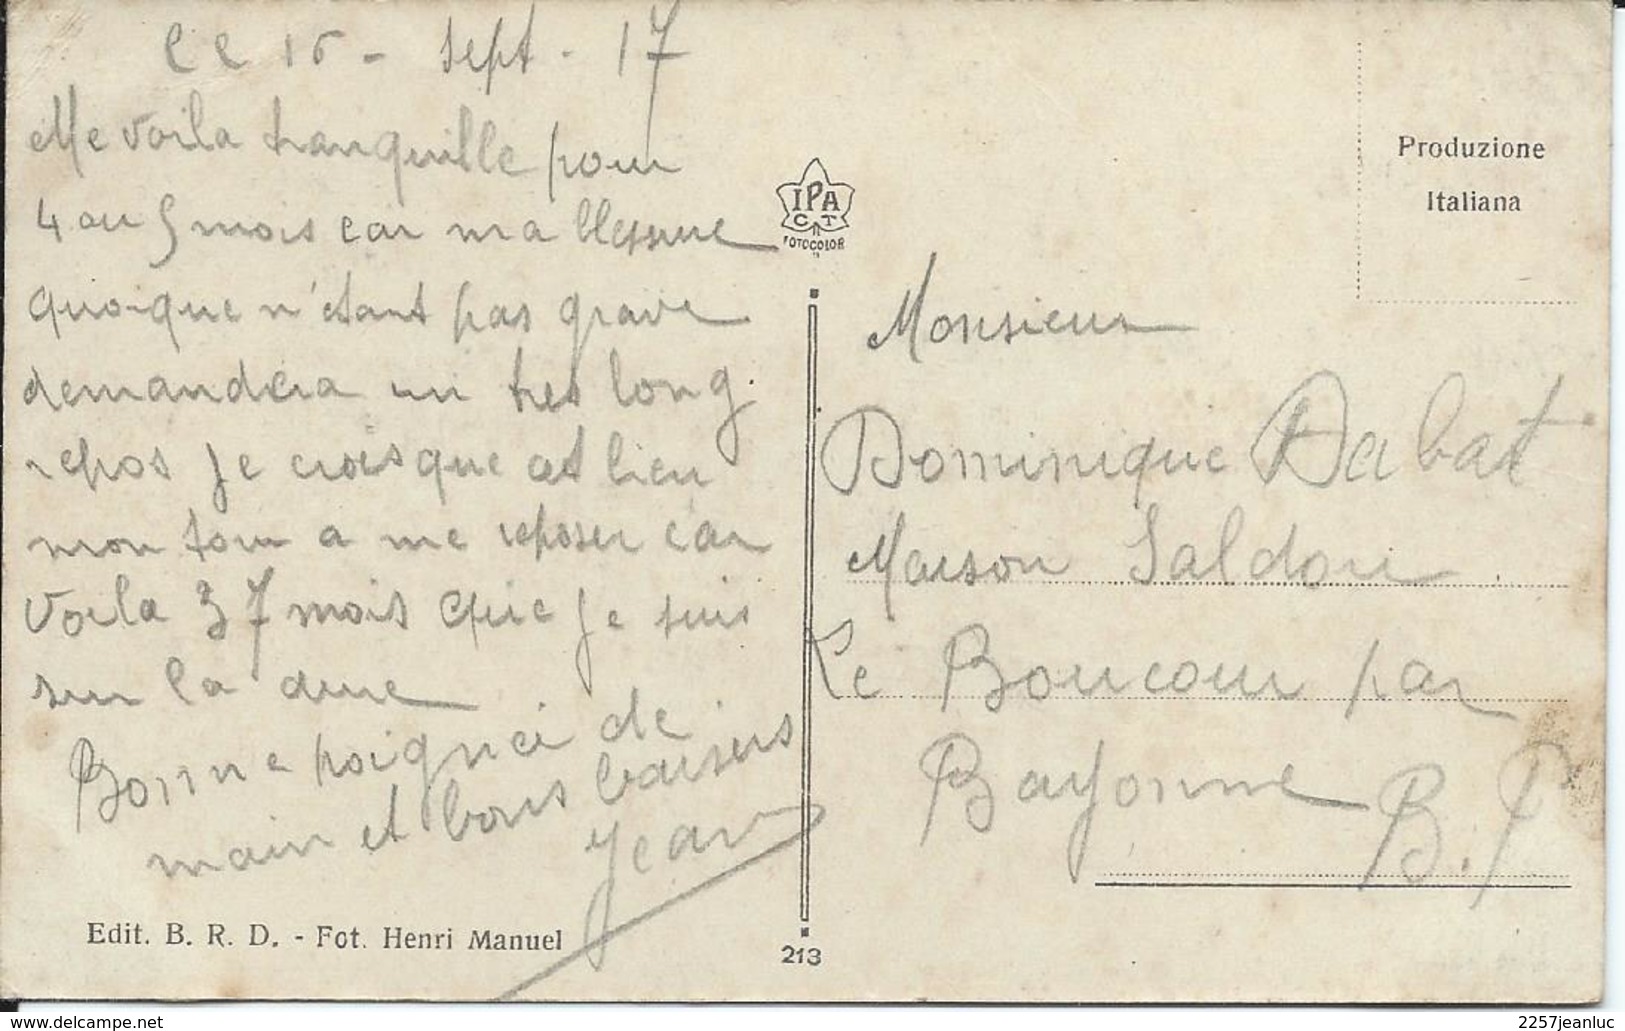 Ce 16 - Sept - 17
Me voila tranquille pour
4 ou 5 mois car ma blessure
quoique n'étant pas grave
demandera un tres long
repos je crois que cest bien
mon tour a me reposer car
voila 37 mois que je suis
sur la dure
Bonne poignée de
main et bons baisers
Jean
Edit. B. R. D. - Fot. Henri Manuel
IPA
CT
FOTOCOLOR
213
Produzione
Italiana
Monsieur
Dominique Dabat
Maison Saldou
Le Boucau par
Bayonne B.P
2257jeanluc
www.delcampe.net